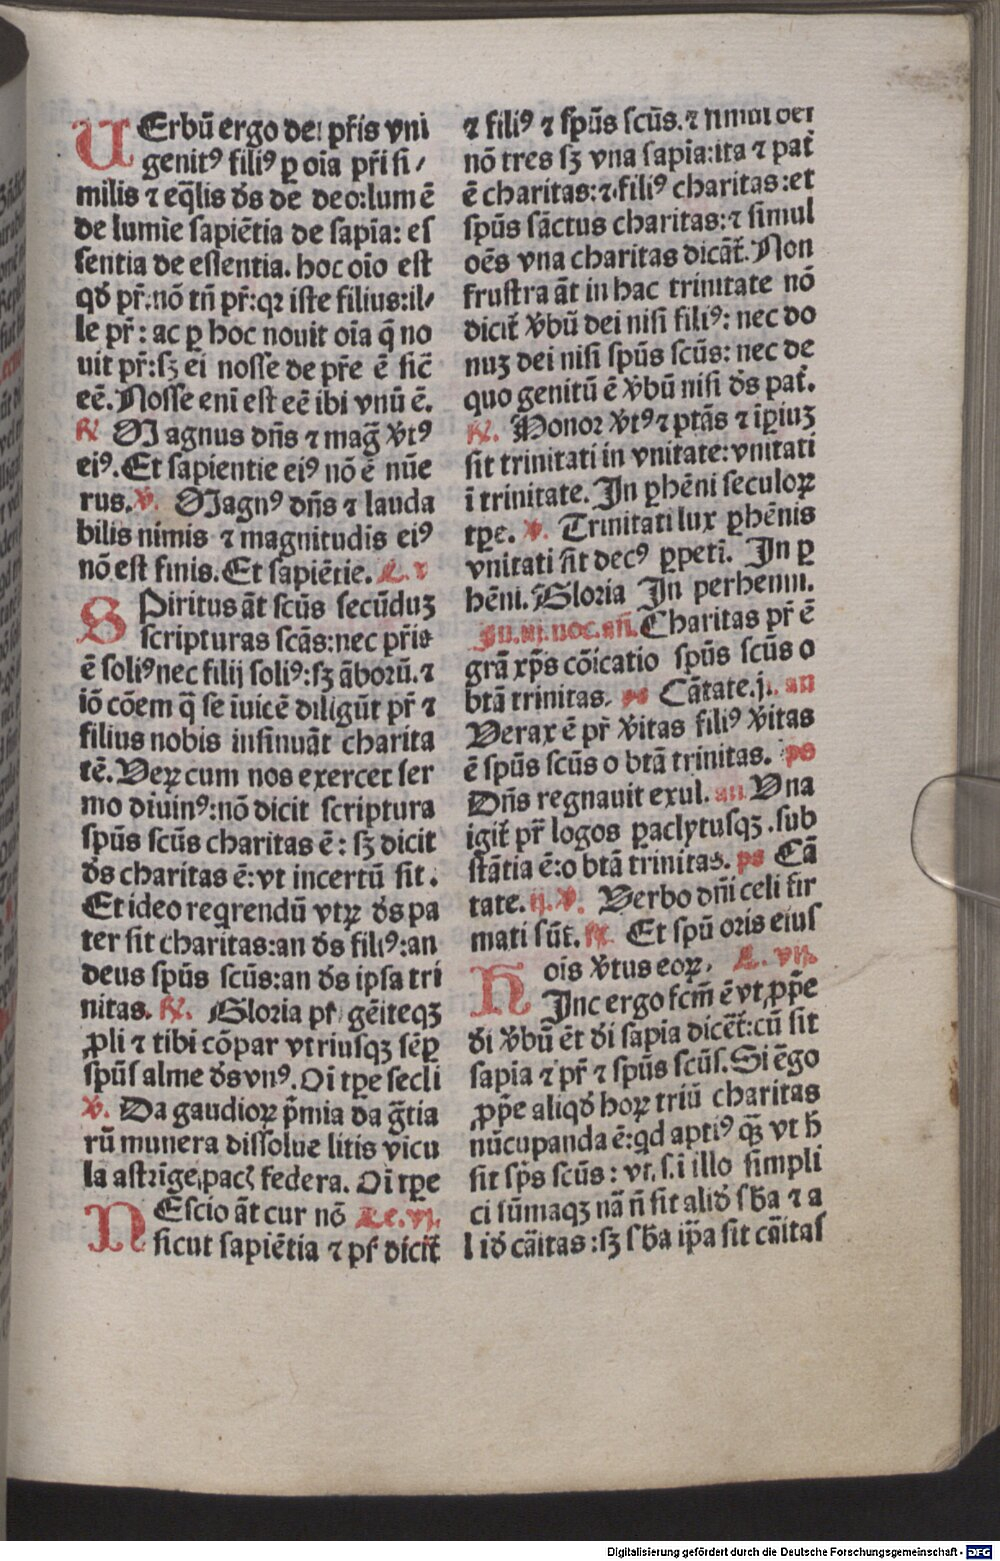 UErbū ergo dei pr̄is vni
genitꝰ filiꝰ ꝑ oīa pr̄i si⸗
milis ⁊ eq̄lis d̄s de deo:lumē
de lumīe sapiētia de sapīa: es
sentia de essentia. hoc oīo est
qđ pr̄.nō tn̄ pr̄:qꝛ iste filius:il⸗
le pr̄: ac ꝑ hoc nouit oīa q̄ no
uit pr̄:sꝫ ei nosse de pr̄e ē sic̄
eē. Nosse enī est eē ibi vnū ē.
℟ Magnus dn̄s ⁊ maḡ v̄tꝰ
eiꝰ. Et sapientie eiꝰ nō ē nūe
rus. ℣. Magnꝰ dn̄s ⁊ lauda
bilis nimis ⁊ magnitudis eiꝰ
nō est finis. Et sapiētie. L. v
SPiritus āt scūs secūduꝫ
scripturas scās:nec pr̄is
ē soliꝰ nec filij soliꝰ:sꝫ āboꝛū.⁊
iō cōem q̄ se īuicē diligūt pr̄ ⁊
filius nobis insinuāt charita
tē. Veꝝ cum nos exercet ser
mo diuinꝰ:nō dicit scriptura
spūs scūs charitas ē: sꝫ dicit
d̄s charitas ē: vt incertū sit.
Et ideo reqrendū vtꝝ d̄s pa
ter sit charitas:an d̄s filiꝰ:an
deus spūs scūs:an d̄s ipsa tri
nitas. ℟. Gloꝛia pr̄i gēiteqꝫ
ꝓli ⁊ tibi cōpar vtriusqꝫ sēꝑ
spūs alme d̄s vnꝰ. Oī tꝑe secli
℣. Da gaudioꝝ p̄mia da ḡtia
rū munera dissolue litis vicu
la astrīge pacꝭ federa. Oī tꝑe
NEscio āt cur nō Le.vj.
sicut sapiētia ⁊ pr̄ dicit̄
⁊ filiꝰ ⁊ spūs scūs.⁊ simul oēs
nō tres sꝫ vna sapīa:ita ⁊ pat̄
ē charitas:⁊ filiꝰ charitas:et
spūs sāctus charitas:⁊ simul
oēs vna charitas dicāt̄. Non
frustra āt in hac trinitate nō
dicit̄ v̄bū dei nisi filiꝰ: nec do
nuꝫ dei nisi spūs scūs: nec de
quo genitū ē v̄bū nisi d̄s pat̄.
℟. Honoꝛ v̄tꝰ ⁊ ptās ⁊ īꝑiuꝫ
sit trinitati in vnitate:vnitati
ī trinitate. In ꝑhēni seculoꝝ
tꝑe. ℣. Trinitati lux ꝑhēnis
vnitati sit decꝰ ꝑpeti. In ꝑ
hēni. Gloꝛia In perhenni.
In.iij.noc.an̄. Charitas pr̄ ē
grā xp̄s cōicatio spūs scūs o
btā trinitas. ps Cātate.j. an
Verax ē pr̄ v̄itas filiꝰ v̄itas
ē spūs scūs o btā trinitas. ps
Dn̄s regnauit exul. an Vna
igit̄ pr̄ logos paclytusqꝫ.sub
stātia ē:o btā trinitas. ps Cā
tate.ij. ℣. Verbo dn̄i celi fir
mati sūt. ℟ Et spū oris eius
ois v̄tus eoꝝ. L. vij.
HInc ergo fcm̄ ē vt ꝓpe
di v̄bū ēt di sapīa dicēt̄:cū sit
sapīa ⁊ pr̄ ⁊ spūs scūs. Si ēgo
ꝓpe aliqđ hoꝝ triū charitas
nūcupanda ē:qd aptiꝰ qꝫ vt h̄
sit sp̄s scūs: vt.s.i illo simpli
ci sūmaqꝫ nā n̄ sit aliđ sb̄a ⁊ a
liđ cāitas:sꝫ sb̄a ip̄a sit cāitas
Digitalisierung gefördert durch die Deutsche Forschungsgemeinschaft - DFG